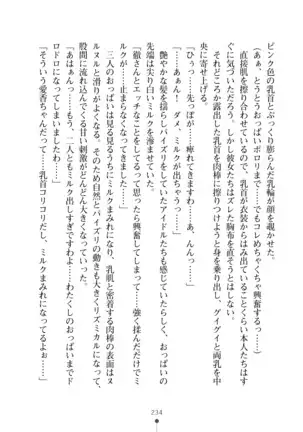 ピンク色の乳首とぷっくり膨らんだ乳輪が顔を覗かせた。
（おぉ、とうとうおっぱいポロリまで……でもコレめちゃくちゃ興奮する……）
直接肌に擦り合わせているので、乳首が衣装からはみ出ていることくらい本人たちはす
ぐに気づいただろう。しかし彼女たちはズレた胸布を直そうとはしない。
それどころか露出した乳首を肉棒に擦りつけようと身を乗り出し、グイグイと両乳を中
央に寄せ上げる。
「ひぅっ……先っぽが……痺れてきますわ……あ、んんっ……」
「……あぁん！　ダメ、ミルク出ちゃうっ……」
艶やかな髪を揺らしパイズリをするアイドルたちも感じているらしく、おっぱいの
先端は尖り白いミルクを滲ませていた。
「徹さんとエッチなことをしてると思ったら興奮してしまって……強く揉んだだけでミ
ルクが……止まらなくなってきました……」
三人のおっぱいは見る見るうちにミルクまみれになり、乳肌と密着する肉棒の表面はヌ
ルヌルと滑りがよくなる。そのため自然とパイズリの動きも大きくリズミカルになってき
て、股間に流れてくる甘い刺激がどんどん大きくなっていった。
「あはぁんっ……もう、二人ともミルク出しすぎですわよ……わたくしのおっぱいまでド
ロドロになってしまいましたわ……」
「そういう愛香ちゃんだって……乳首コリコリだし、ミルクまみれになってるよぉ……」
234